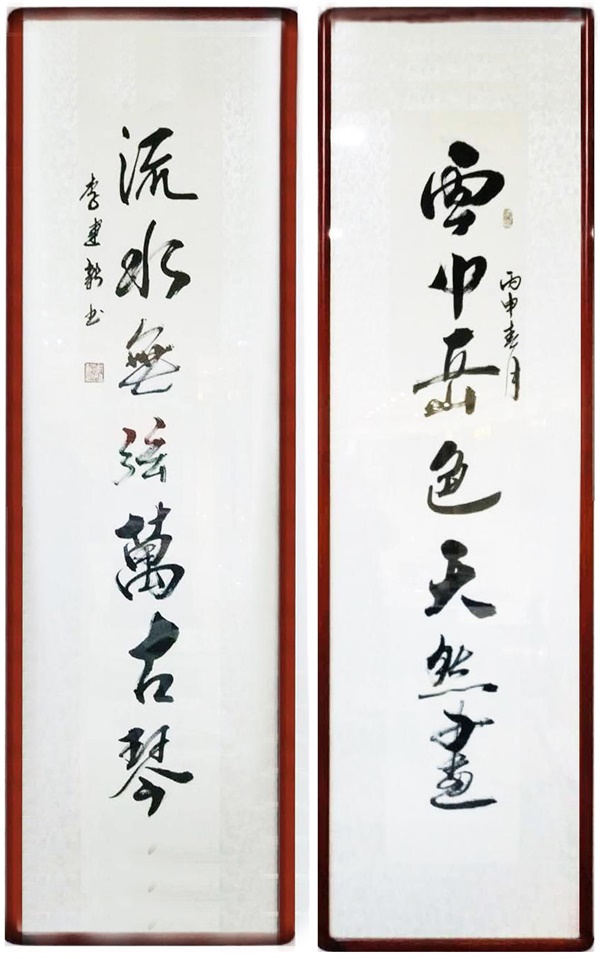 丙申春月
雲中岳色天然畫
流水無弦萬古琴
李建新书